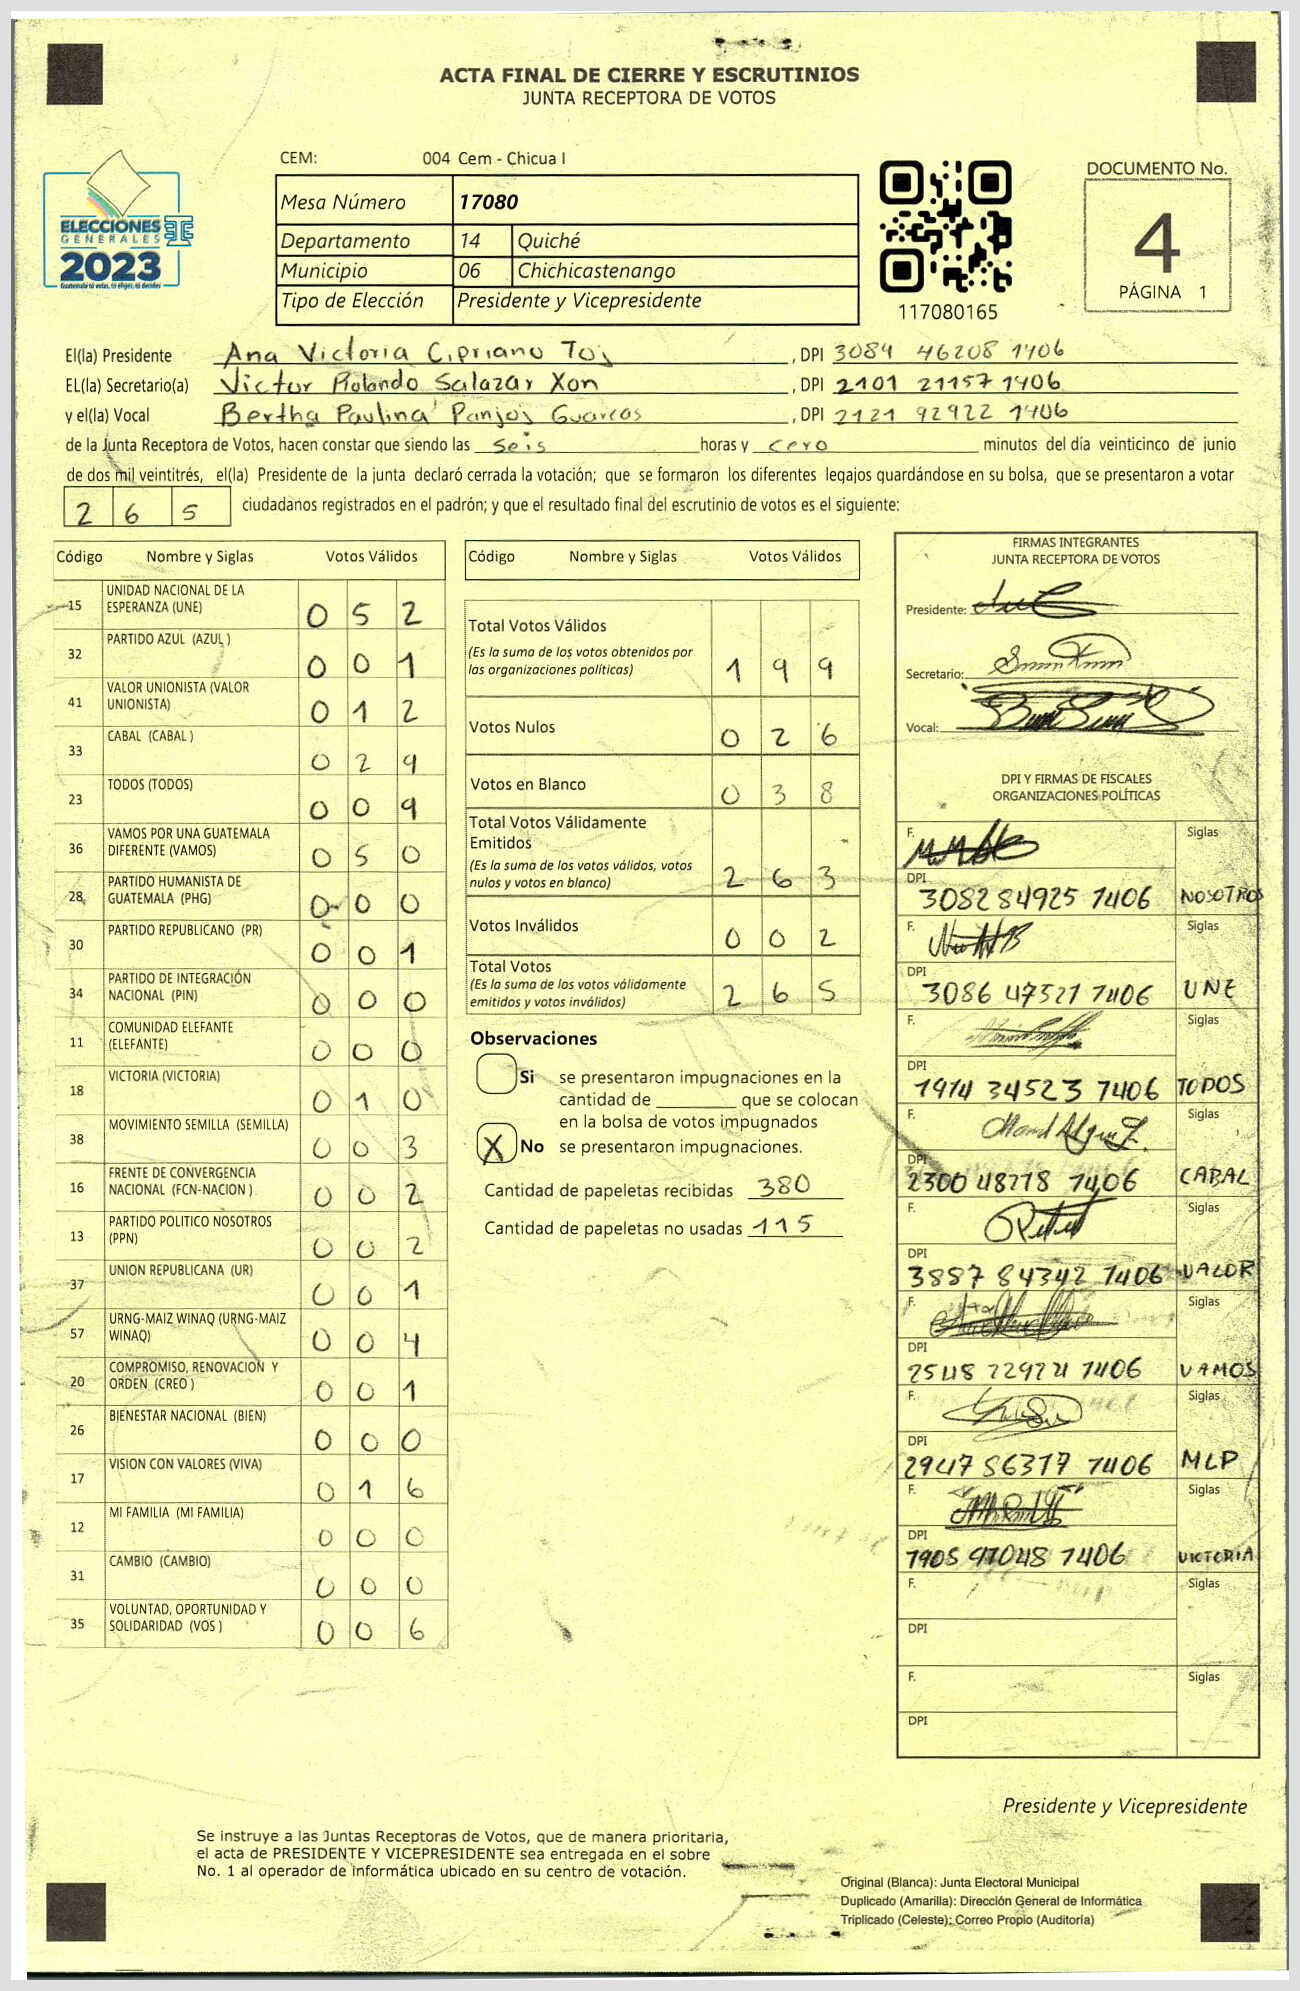 ACTA FINAL DE CIERRE Y ESCRUTINIOS
JUNTA RECEPTORA DE VOTOS
CEM: 004 Cem - Chicua I
ELECCIONES
GENERALES
2023
Guatemala tú votas, tú eliges, tú decides
Mesa Número 17080
Departamento 14 Quiché
Municipio 06 Chichicastenango
Tipo de Elección Presidente y Vicepresidente
117080165
DOCUMENTO No.
4
PÁGINA 1
El(la) Presidente Ana Victoria Cipriano Toj , DPI 3084 46208 1406
EL(la) Secretario(a) Victor Rolando Salazar Xon , DPI 2101 21157 1406
y el(la) Vocal Bertha Paulina Panjoj Guarcas , DPI 2121 92922 1406
de la Junta Receptora de Votos, hacen constar que siendo las seis horas y cero minutos del día veinticinco de junio
de dos mil veintitrés, el(la) Presidente de la junta declaró cerrada la votación; que se formaron los diferentes legajos guardándose en su bolsa, que se presentaron a votar
265 ciudadanos registrados en el padrón; y que el resultado final del escrutinio de votos es el siguiente:
Código Nombre y Siglas Votos Válidos
15 UNIDAD NACIONAL DE LA
ESPERANZA (UNE) 052
32 PARTIDO AZUL (AZUL ) 001
41 VALOR UNIONISTA (VALOR
UNIONISTA) 012
33 CABAL (CABAL ) 029
23 TODOS (TODOS) 009
36 VAMOS POR UNA GUATEMALA
DIFERENTE (VAMOS) 050
28 PARTIDO HUMANISTA DE
GUATEMALA (PHG) 000
30 PARTIDO REPUBLICANO (PR) 001
34 PARTIDO DE INTEGRACIÓN
NACIONAL (PIN) 000
11 COMUNIDAD ELEFANTE
(ELEFANTE) 000
18 VICTORIA (VICTORIA) 010
38 MOVIMIENTO SEMILLA (SEMILLA) 003
16 FRENTE DE CONVERGENCIA
NACIONAL (FCN-NACION ) 002
13 PARTIDO POLITICO NOSOTROS
(PPN) 002
37 UNION REPUBLICANA (UR) 001
57 URNG-MAIZ WINAQ (URNG-MAIZ
WINAQ) 004
20 COMPROMISO, RENOVACION Y
ORDEN (CREO ) 001
26 BIENESTAR NACIONAL (BIEN) 000
17 VISION CON VALORES (VIVA) 016
12 MI FAMILIA (MI FAMILIA) 000
31 CAMBIO (CAMBIO) 000
35 VOLUNTAD, OPORTUNIDAD Y
SOLIDARIDAD (VOS ) 006
Código Nombre y Siglas Votos Válidos
Total Votos Válidos
(Es la suma de los votos obtenidos por
las organizaciones políticas) 199
Votos Nulos 026
Votos en Blanco 038
Total Votos Válidamente
Emitidos
(Es la suma de los votos válidos, votos
nulos y votos en blanco) 263
Votos Inválidos 002
Total Votos
(Es la suma de los votos válidamente
emitidos y votos inválidos) 265
Observaciones
Si se presentaron impugnaciones en la
cantidad de ________ que se colocan
en la bolsa de votos impugnados
X No se presentaron impugnaciones.
Cantidad de papeletas recibidas 380
Cantidad de papeletas no usadas 115
FIRMAS INTEGRANTES
JUNTA RECEPTORA DE VOTOS
Presidente:
Secretario:
Vocal:
DPI Y FIRMAS DE FISCALES
ORGANIZACIONES POLÍTICAS
F. Siglas
DPI
3082 84925 1406 NOSOTROS
F. Siglas
DPI
3086 47521 1406 UNE
F. Siglas
DPI
1914 34523 1406 TODOS
F. Siglas
DPI
2300 48778 1406 CABAL
F. Siglas
DPI
3887 84342 1406 VALOR
F. Siglas
DPI
2548 22921 1406 VAMOS
F. Siglas
DPI
2947 86317 1406 MLP
F. Siglas
DPI
1905 97048 1406 VICTORIA
F. Siglas
DPI
F. Siglas
DPI
Presidente y Vicepresidente
Se instruye a las Juntas Receptoras de Votos, que de manera prioritaria,
el acta de PRESIDENTE Y VICEPRESIDENTE sea entregada en el sobre
No. 1 al operador de informática ubicado en su centro de votación.
Original (Blanca): Junta Electoral Municipal
Duplicado (Amarilla): Dirección General de Informática
Triplicado (Celeste): Correo Propio (Auditoría)